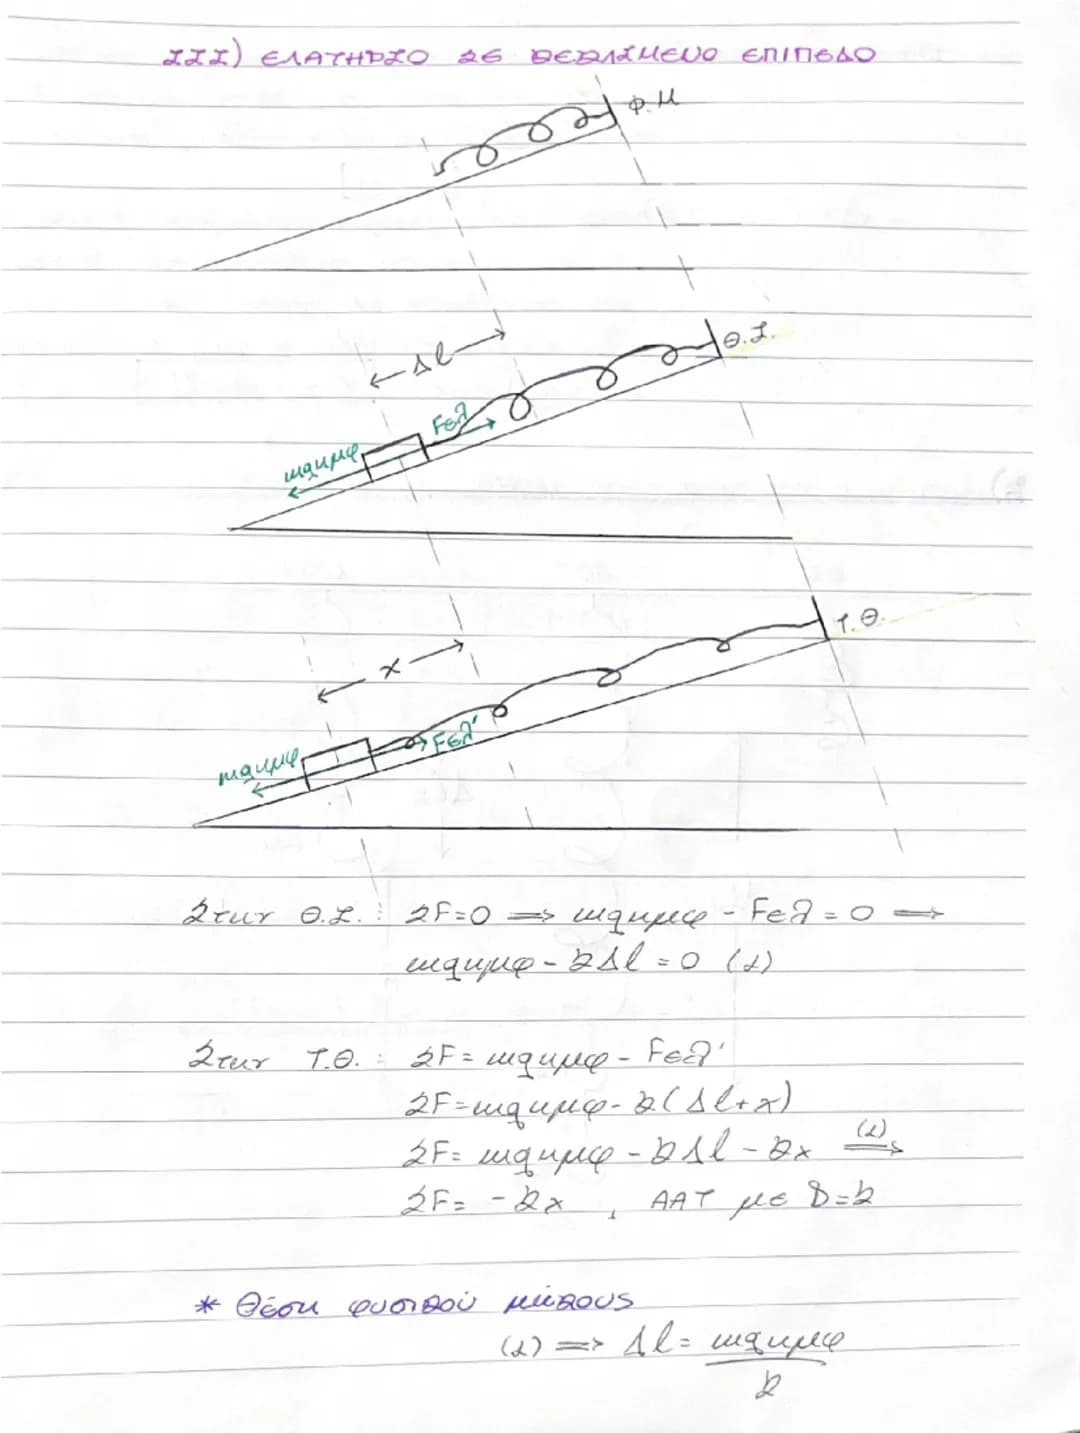 III) ΕΛΑΤΗΡΙΟ ΣΕ ΚΕΚΛΙΜΕΝΟ ΕΠΙΠΕΔΟ
Φ.Μ
Δl
Θ.Ι.
Fελ
mgημφ
x
Τ.Θ.
Fελ'
mgημφ
Στην Θ.Ι. : ΣF=0 ⇒ mgημφ - Fελ = 0 ⇒
mgημφ - kΔl = 0 (1)
Στην Τ.Θ. : ΣF = mgημφ - Fελ'
ΣF = mgημφ - k(Δl+x)
ΣF = mgημφ - kΔl - kx (1)⇒
ΣF = -kx , ΑΑΤ με D=k
* Θέση φυσικού μήκους
(1) ⇒ Δl = mgημφ
k